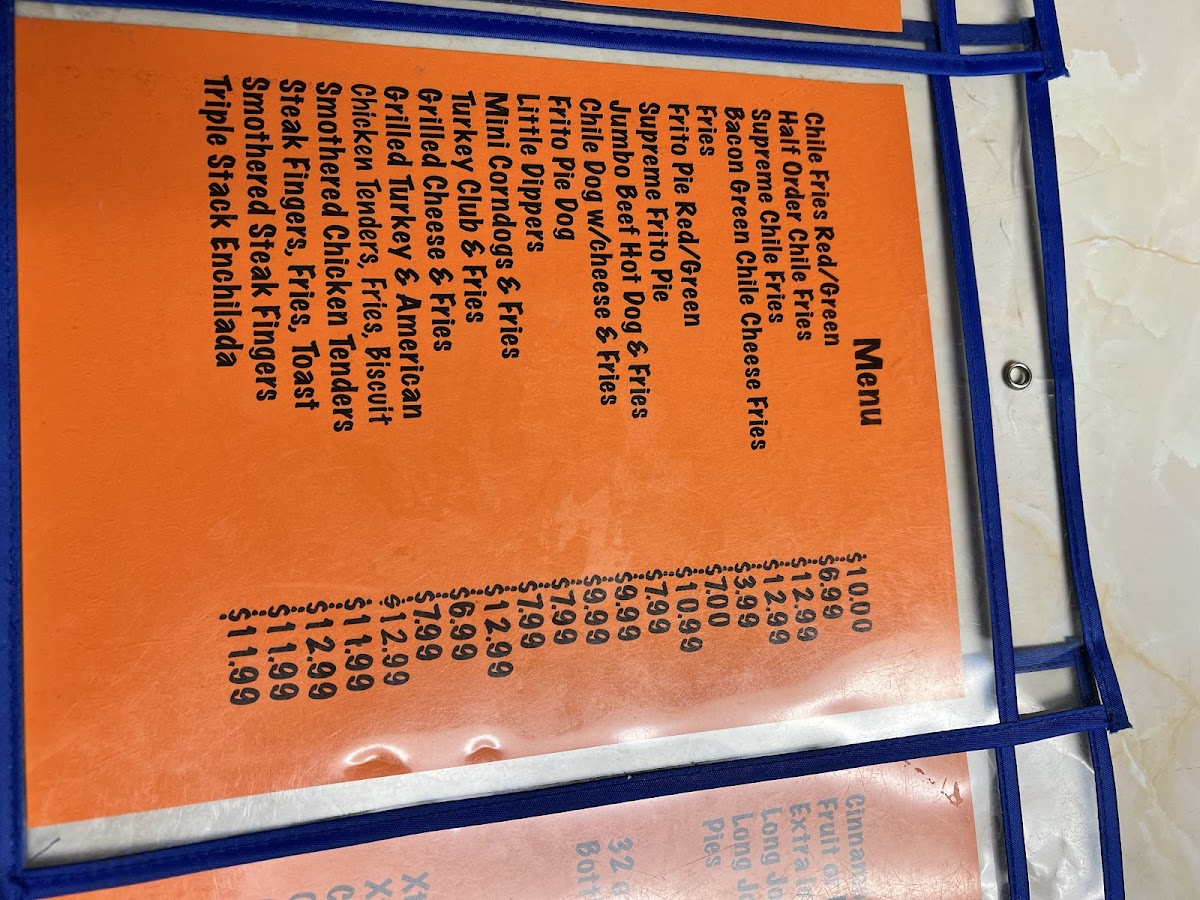 Menu
Chile Fries Red/Green $10.00
Half Order Chile Fries $6.99
Supreme Chile Fries $12.99
Bacon Green Chile Cheese Fries $12.99
Fries $3.99
Frito Pie Red/Green $7.00
Supreme Frito Pie $10.99
Jumbo Beef Hot Dog & Fries $7.99
Chile Dog w/cheese & Fries $9.99
Frito Pie Dog $9.99
Little Dippers $7.99
Mini Corndogs & Fries $7.99
Turkey Club & Fries $12.99
Grilled Cheese & Fries $6.99
Grilled Turkey & American $7.99
Chicken Tenders, Fries, Biscuit $12.99
Smothered Chicken Tenders $11.99
Steak Fingers, Fries, Toast $12.99
Smothered Steak Fingers $11.99
Triple Stack Enchilada $11.99
Fruit
Extra
Long
Long
Pies
32